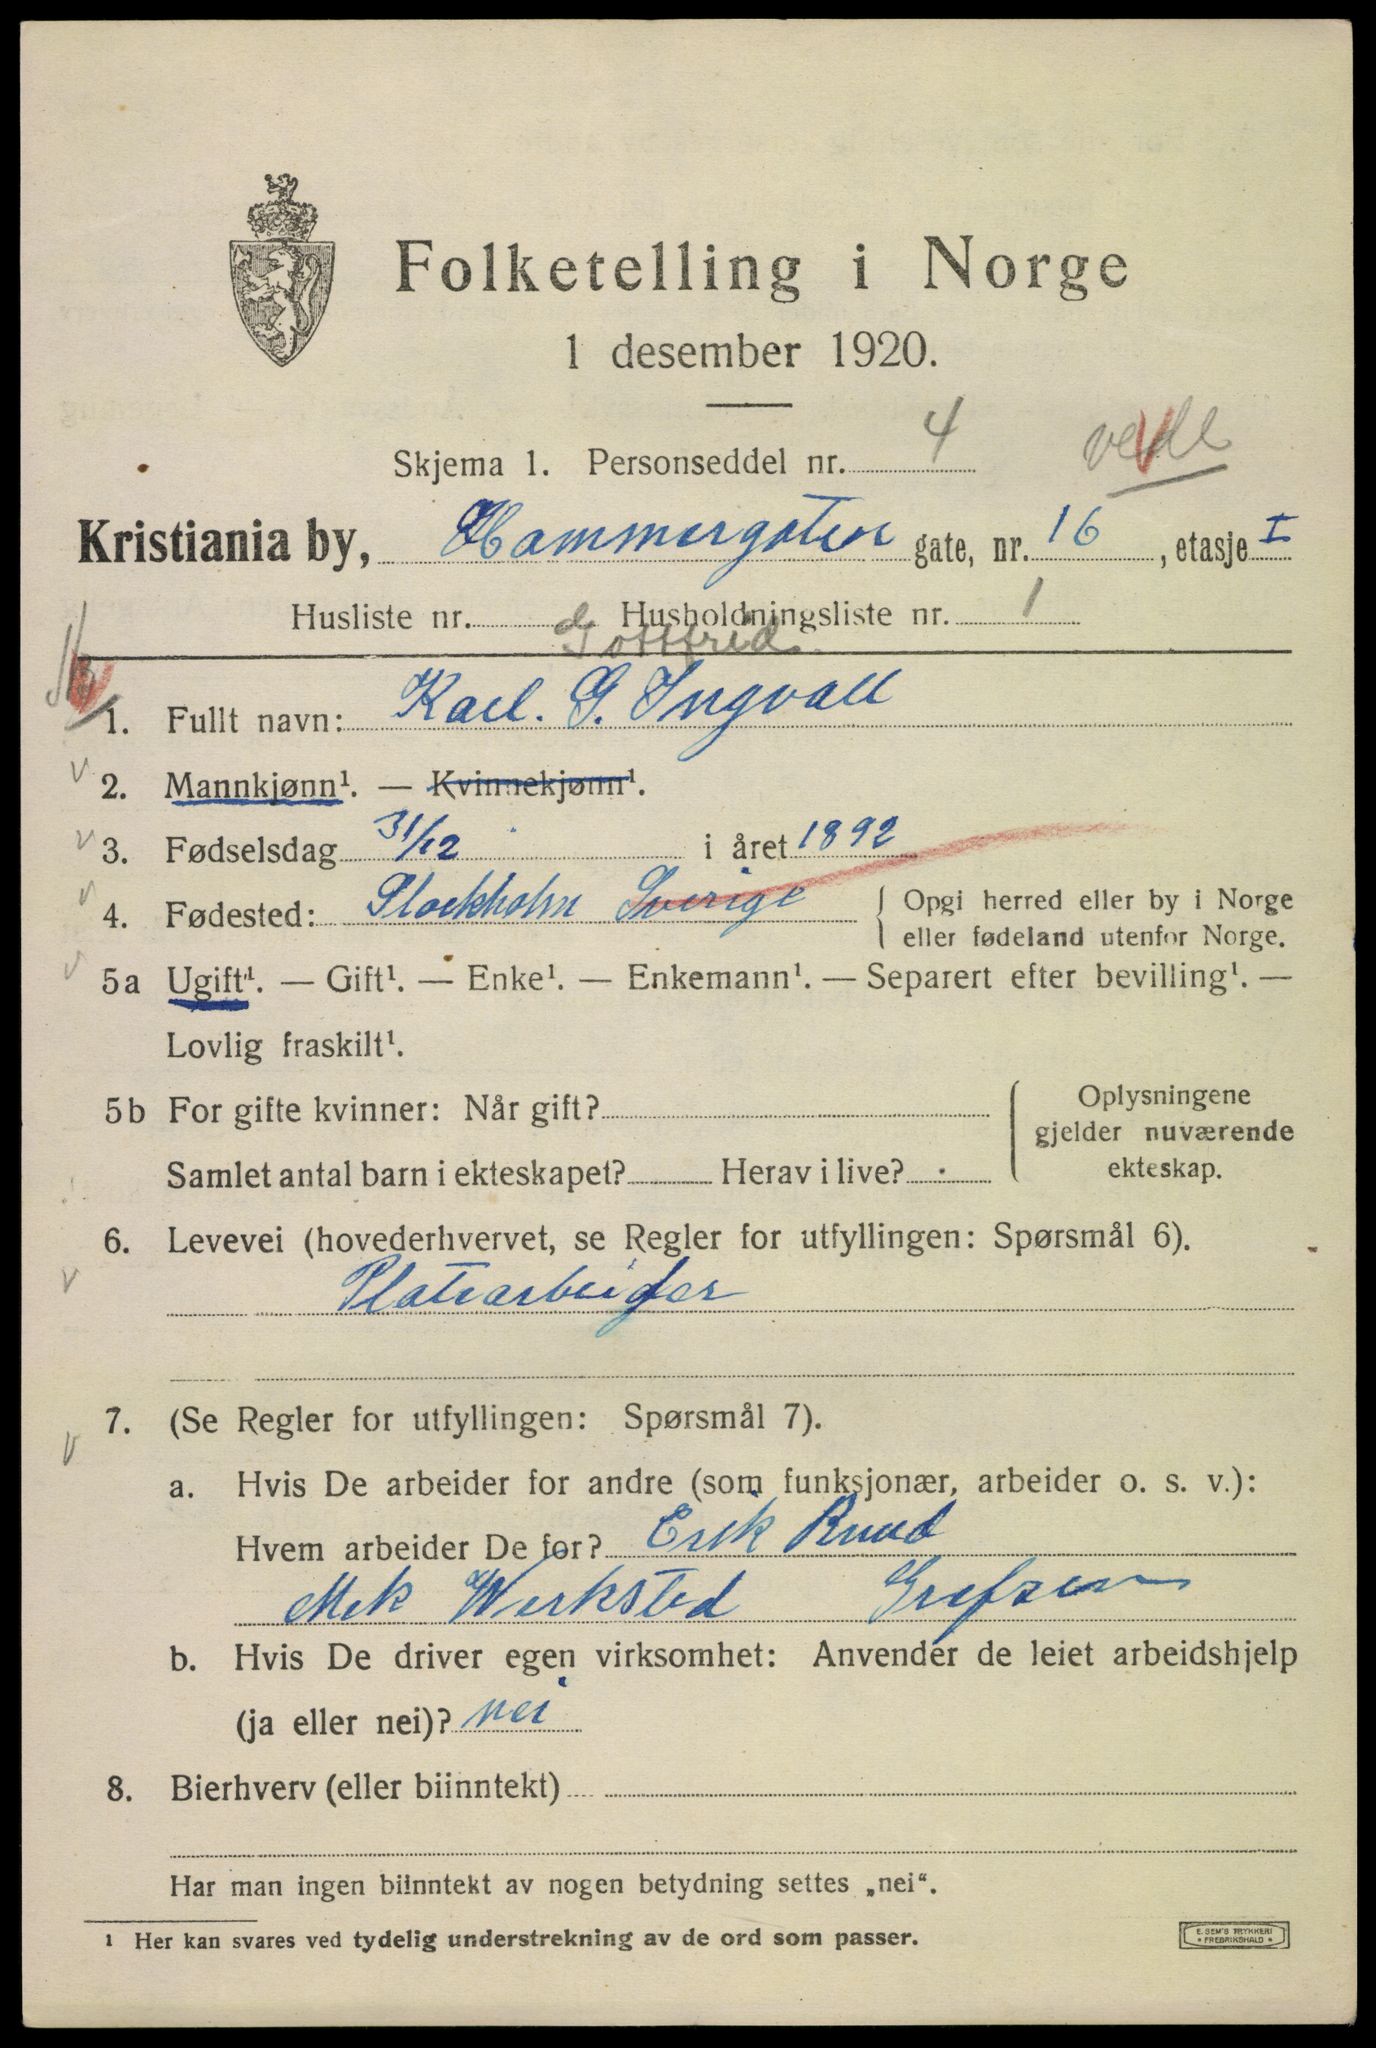 Folketelling i Norge
1 desember 1920.
Skjema 1. Personseddel nr. 4
Kristiania by, Hammergaten gate, nr. 16, etasje I
Husliste nr. Husholdningsliste nr. 1
Gottfrid
1. Fullt navn: Karl. G. Ingvall
2. Mannkjønn¹. — Kvinnekjønn¹.
3. Fødselsdag 31/12 i året 1892
4. Fødested: Stockholm Sverige { Opgi herred eller by i Norge
eller fødeland utenfor Norge.
5a Ugift¹. — Gift¹. — Enke¹. — Enkemann¹. — Separert efter bevilling¹. —
Lovlig fraskilt¹.
5b For gifte kvinner: Når gift? { Oplysningene
gjelder nuværende
Samlet antal barn i ekteskapet? Herav i live? ekteskap.
6. Levevei (hovederhvervet, se Regler for utfyllingen: Spørsmål 6).
Platearbeider
7. (Se Regler for utfyllingen: Spørsmål 7).
a. Hvis De arbeider for andre (som funksjonær, arbeider o. s. v.):
Hvem arbeider De for? Erik Ruud
Mek Werksted Grefsen
b. Hvis De driver egen virksomhet: Anvender de leiet arbeidshjelp
(ja eller nei)? nei
8. Bierhverv (eller biinntekt)
Har man ingen biinntekt av nogen betydning settes „nei“.
¹ Her kan svares ved tydelig understrekning av de ord som passer.
E. SEM'S TRYKKERI
* FREDRIKSHALD *